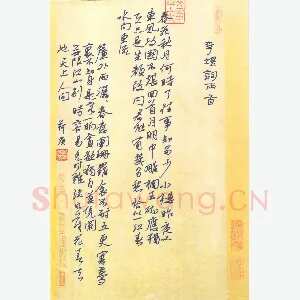 李煜詞兩首
春花秋月何時了往事知多少小樓昨夜又
東風故國不堪回首月明中雕欄玉砌應猶
在只是朱顏改問君能有幾多愁恰似一江春
水向東流
簾外雨潺潺春意闌珊羅衾不耐五更寒夢
裏不知身是客一晌貪歡獨自莫憑闌
無限江山別時容易見時難流水落花春去
也天上人間